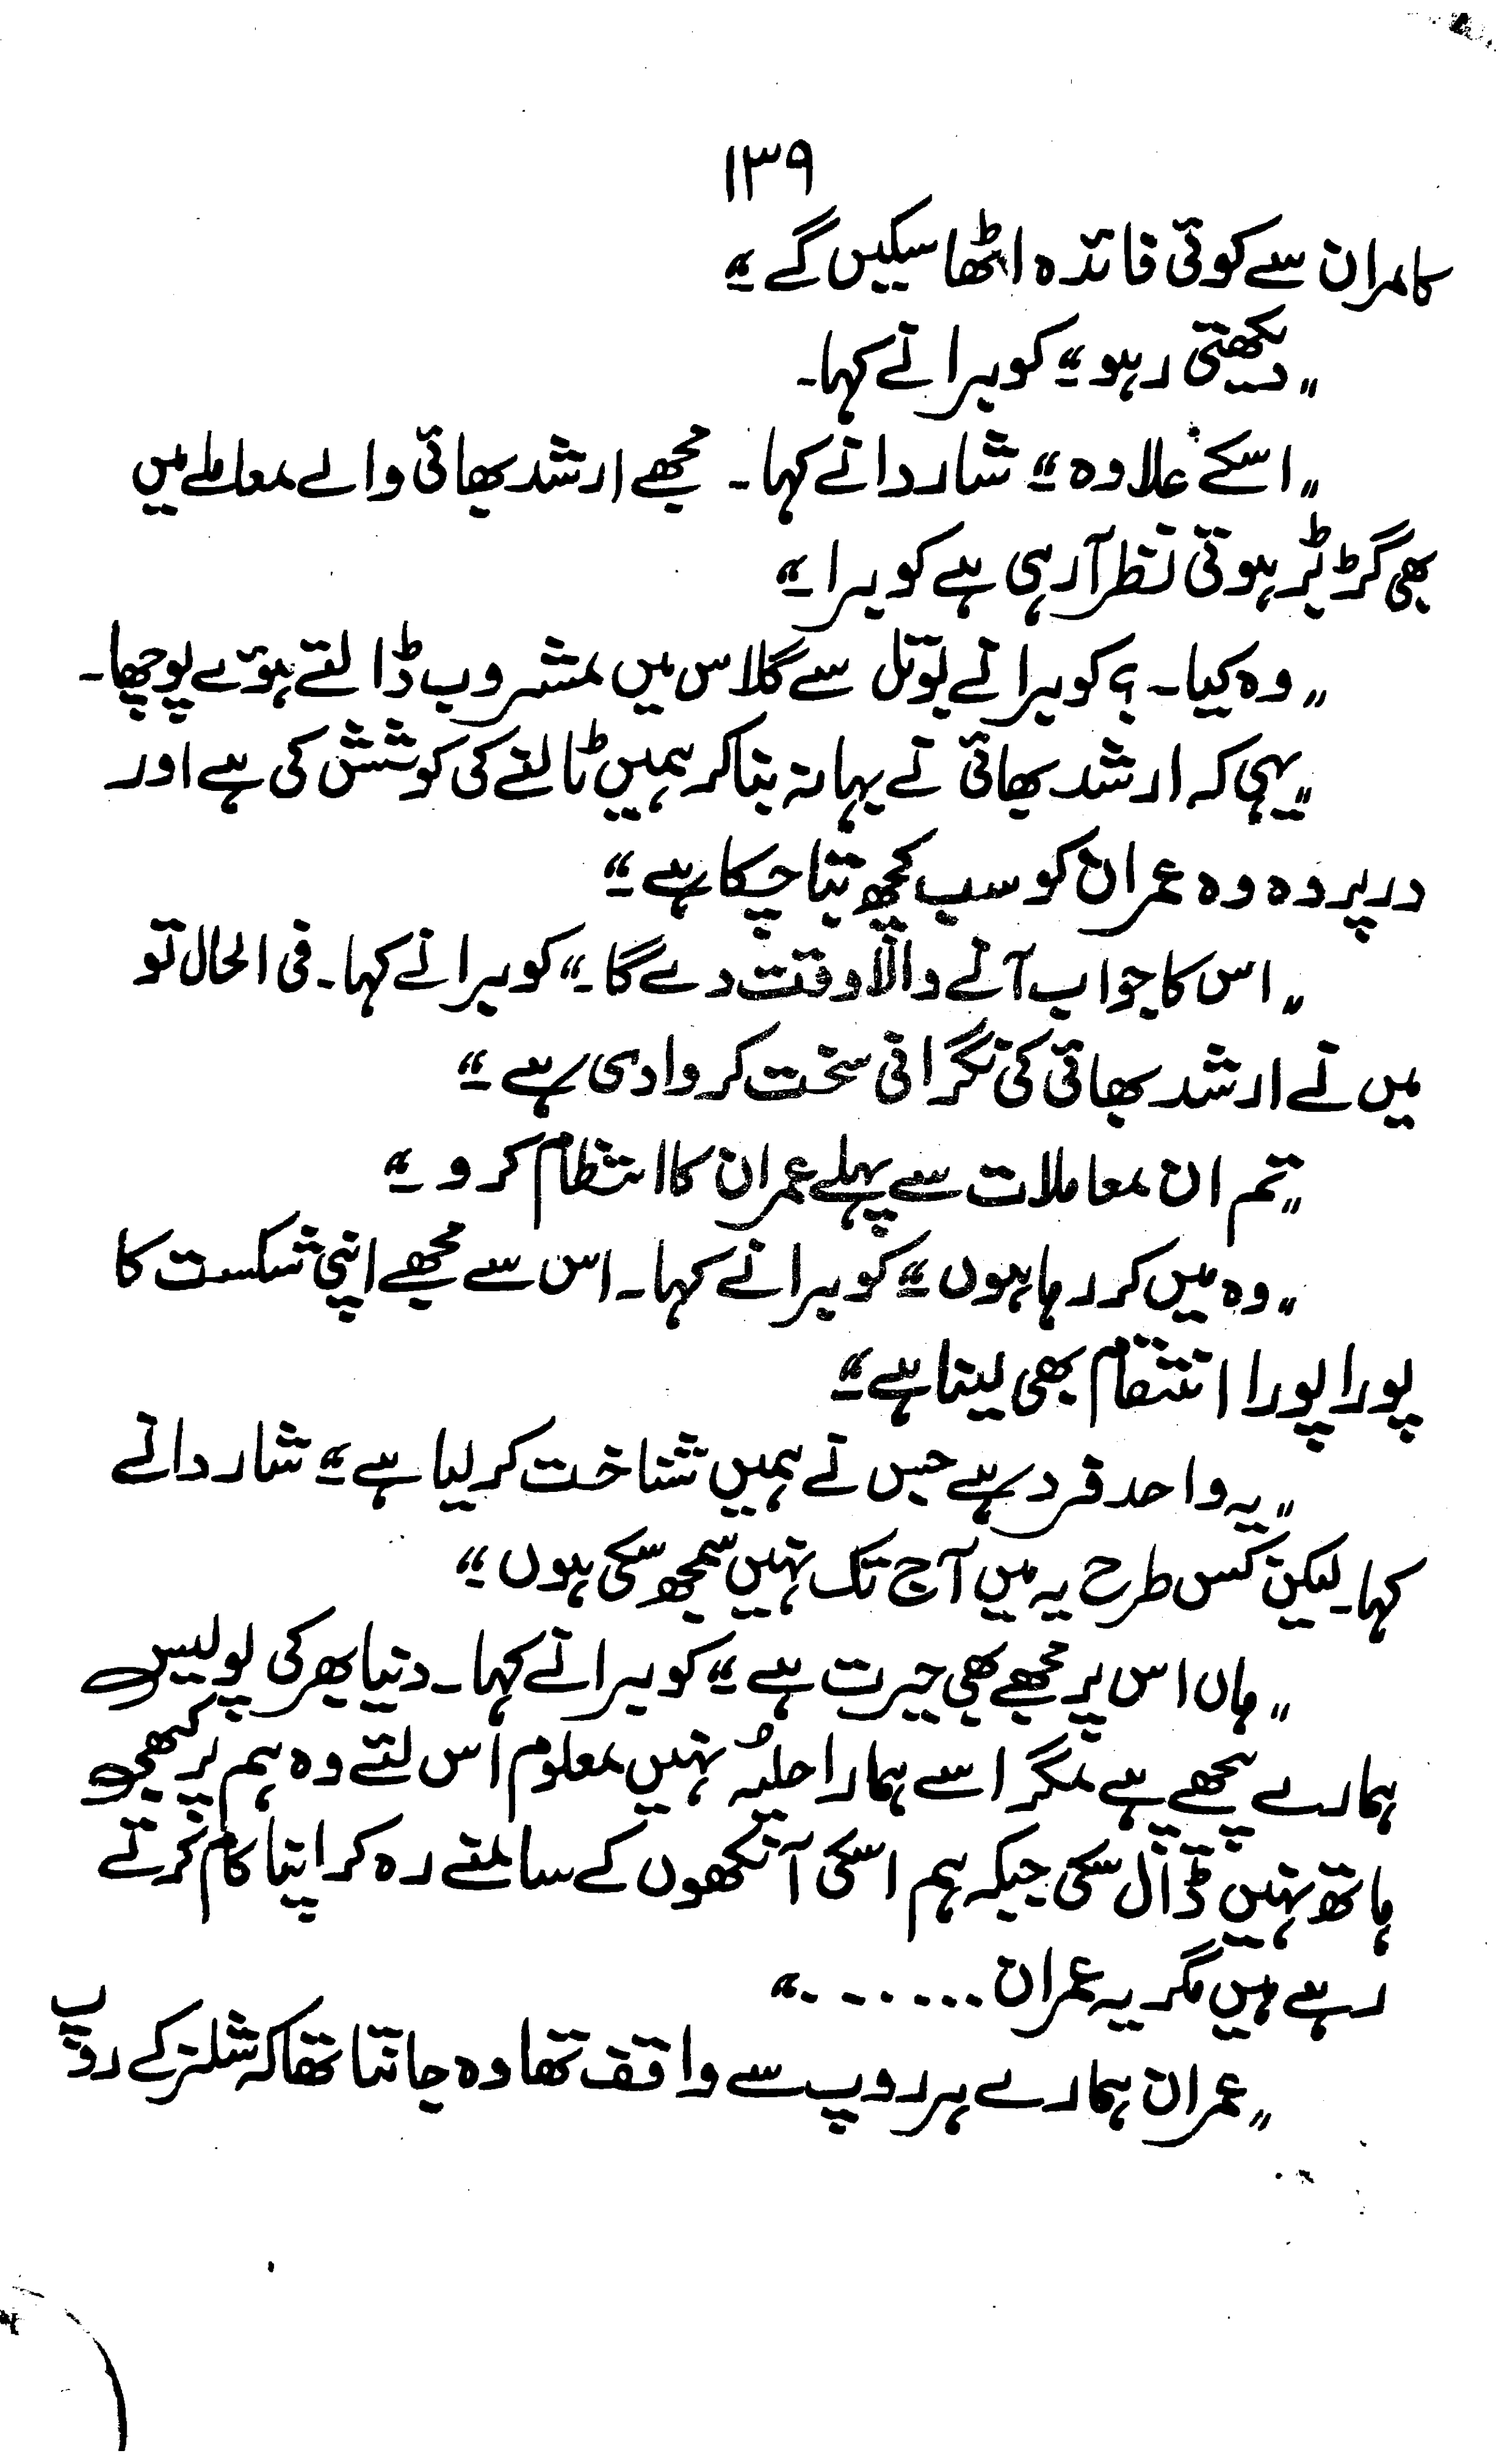 ۱۳۹
کامران سے کوئی فائدہ اٹھا سکیں گے۔“
”دیکھتی رہو۔“ کوبرا نے کہا۔
”اسکے علاوہ۔“ شاردا نے کہا۔ مجھے ارشد بھائی والے معاملے میں
بھی گڑبڑ ہوتی نظر آ رہی ہے کوبرا۔“
”وہ کیا۔؟ کوبرا نے بوتل سے گلاس میں مشروب ڈالتے ہوئے پوچھا۔
”یہی کہ ارشد بھائی نے بہانہ بنا کر ہمیں ٹالنے کی کوشش کی ہے اور
درپردہ وہ عمران کو سب کچھ بتا چکا ہے۔“
”اس کا جواب آنے والا وقت دے گا۔“ کوبرا نے کہا۔ فی الحال تو
میں نے ارشد بھائی کی نگرانی سخت کروا دی ہے۔“
”تم ان معاملات سے پہلے عمران کا انتظام کرو۔“
”وہ میں کر رہا ہوں۔“ کوبرا نے کہا۔ اس سے مجھے اپنی شکست کا
پورا پورا انتقام بھی لینا ہے۔“
”یہ واحد فرد ہے جس نے ہمیں شناخت کر لیا ہے۔“ شاردا نے
کہا۔ لیکن کس طرح یہ میں آج تک نہیں سمجھ سکی ہوں۔“
”ہاں اس پر مجھے بھی حیرت ہے۔“ کوبرا نے کہا۔ دنیا بھر کی پولیس
ہمارے پیچھے ہے مگر اسے ہمارا حلیہ نہیں معلوم اس لئے وہ ہم پر کبھی
ہاتھ نہیں ڈال سکی جبکہ ہم اسکی آنکھوں کے سامنے رہ کر اپنا کام کرتے
رہے ہیں مگر یہ عمران .......“
”عمران ہمارے ہر روپ سے واقف تھا وہ جانتا تھا کہ شلنر کے روپ